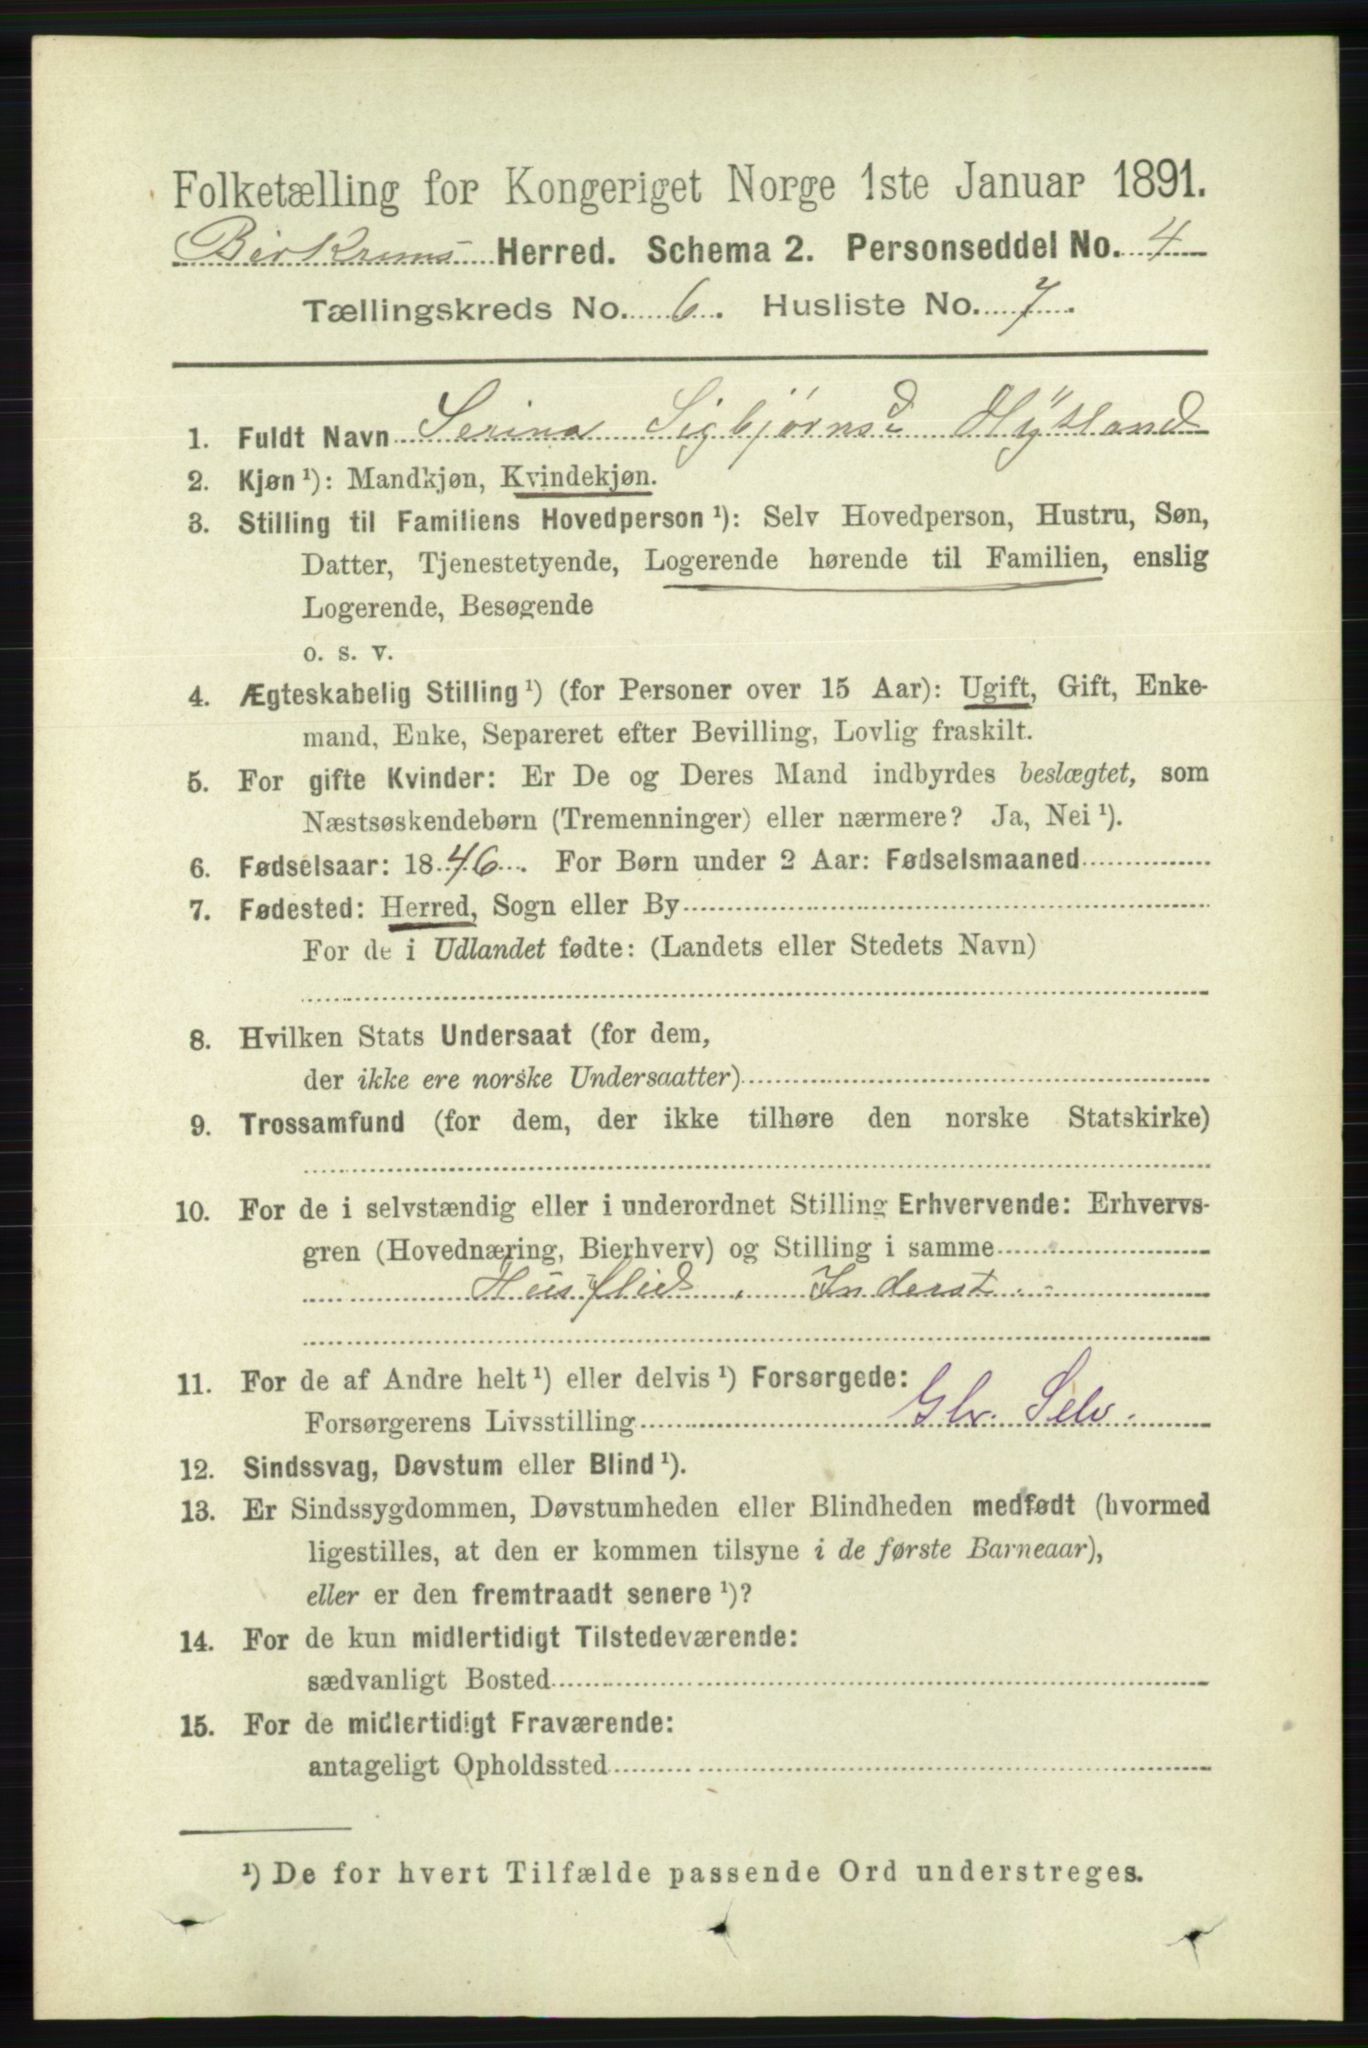 Folketælling for Kongeriget Norge 1ste Januar 1891.
Birkrems Herred. Schema 2. Personseddel No. 4
Tællingskreds No. 6. Husliste No. 7.
1. Fuldt Navn Serina Sigbjørnsd Hytland
2. Kjøn ¹): Mandkjøn, Kvindekjøn.
3. Stilling til Familiens Hovedperson ¹): Selv Hovedperson, Hustru, Søn,
Datter, Tjenestetyende, Logerende hørende til Familien, enslig
Logerende, Besøgende
o. s. v.
4. Ægteskabelig Stilling ¹) (for Personer over 15 Aar): Ugift, Gift, Enke-
mand, Enke, Separeret efter Bevilling, Lovlig fraskilt.
5. For gifte Kvinder: Er De og Deres Mand indbyrdes beslægtet, som
Næstsøskendebørn (Tremenninger) eller nærmere? Ja, Nei ¹).
6. Fødselsaar: 1846. For Børn under 2 Aar: Fødselsmaaned
7. Fødested: Herred, Sogn eller By
For de i Udlandet fødte: (Landets eller Stedets Navn)
8. Hvilken Stats Undersaat (for dem,
der ikke ere norske Undersaatter)
9. Trossamfund (for dem, der ikke tilhøre den norske Statskirke)
10. For de i selvstændig eller i underordnet Stilling Erhvervende: Erhvervs-
gren (Hovednæring, Bierhverv) og Stilling i samme
Husflid. Inderst.
11. For de af Andre helt ¹) eller delvis ¹) Forsørgede:
Forsørgerens Livsstilling Glv. Selv.
12. Sindssvag, Døvstum eller Blind ¹).
13. Er Sindssygdommen, Døvstumheden eller Blindheden medfødt (hvormed
ligestilles, at den er kommen tilsyne i de første Barneaar),
eller er den fremtraadt senere ¹)?
14. For de kun midlertidigt Tilstedeværende:
sædvanligt Bosted
15. For de midlertidigt Fraværende:
antageligt Opholdssted
¹) De for hvert Tilfælde passende Ord understreges.